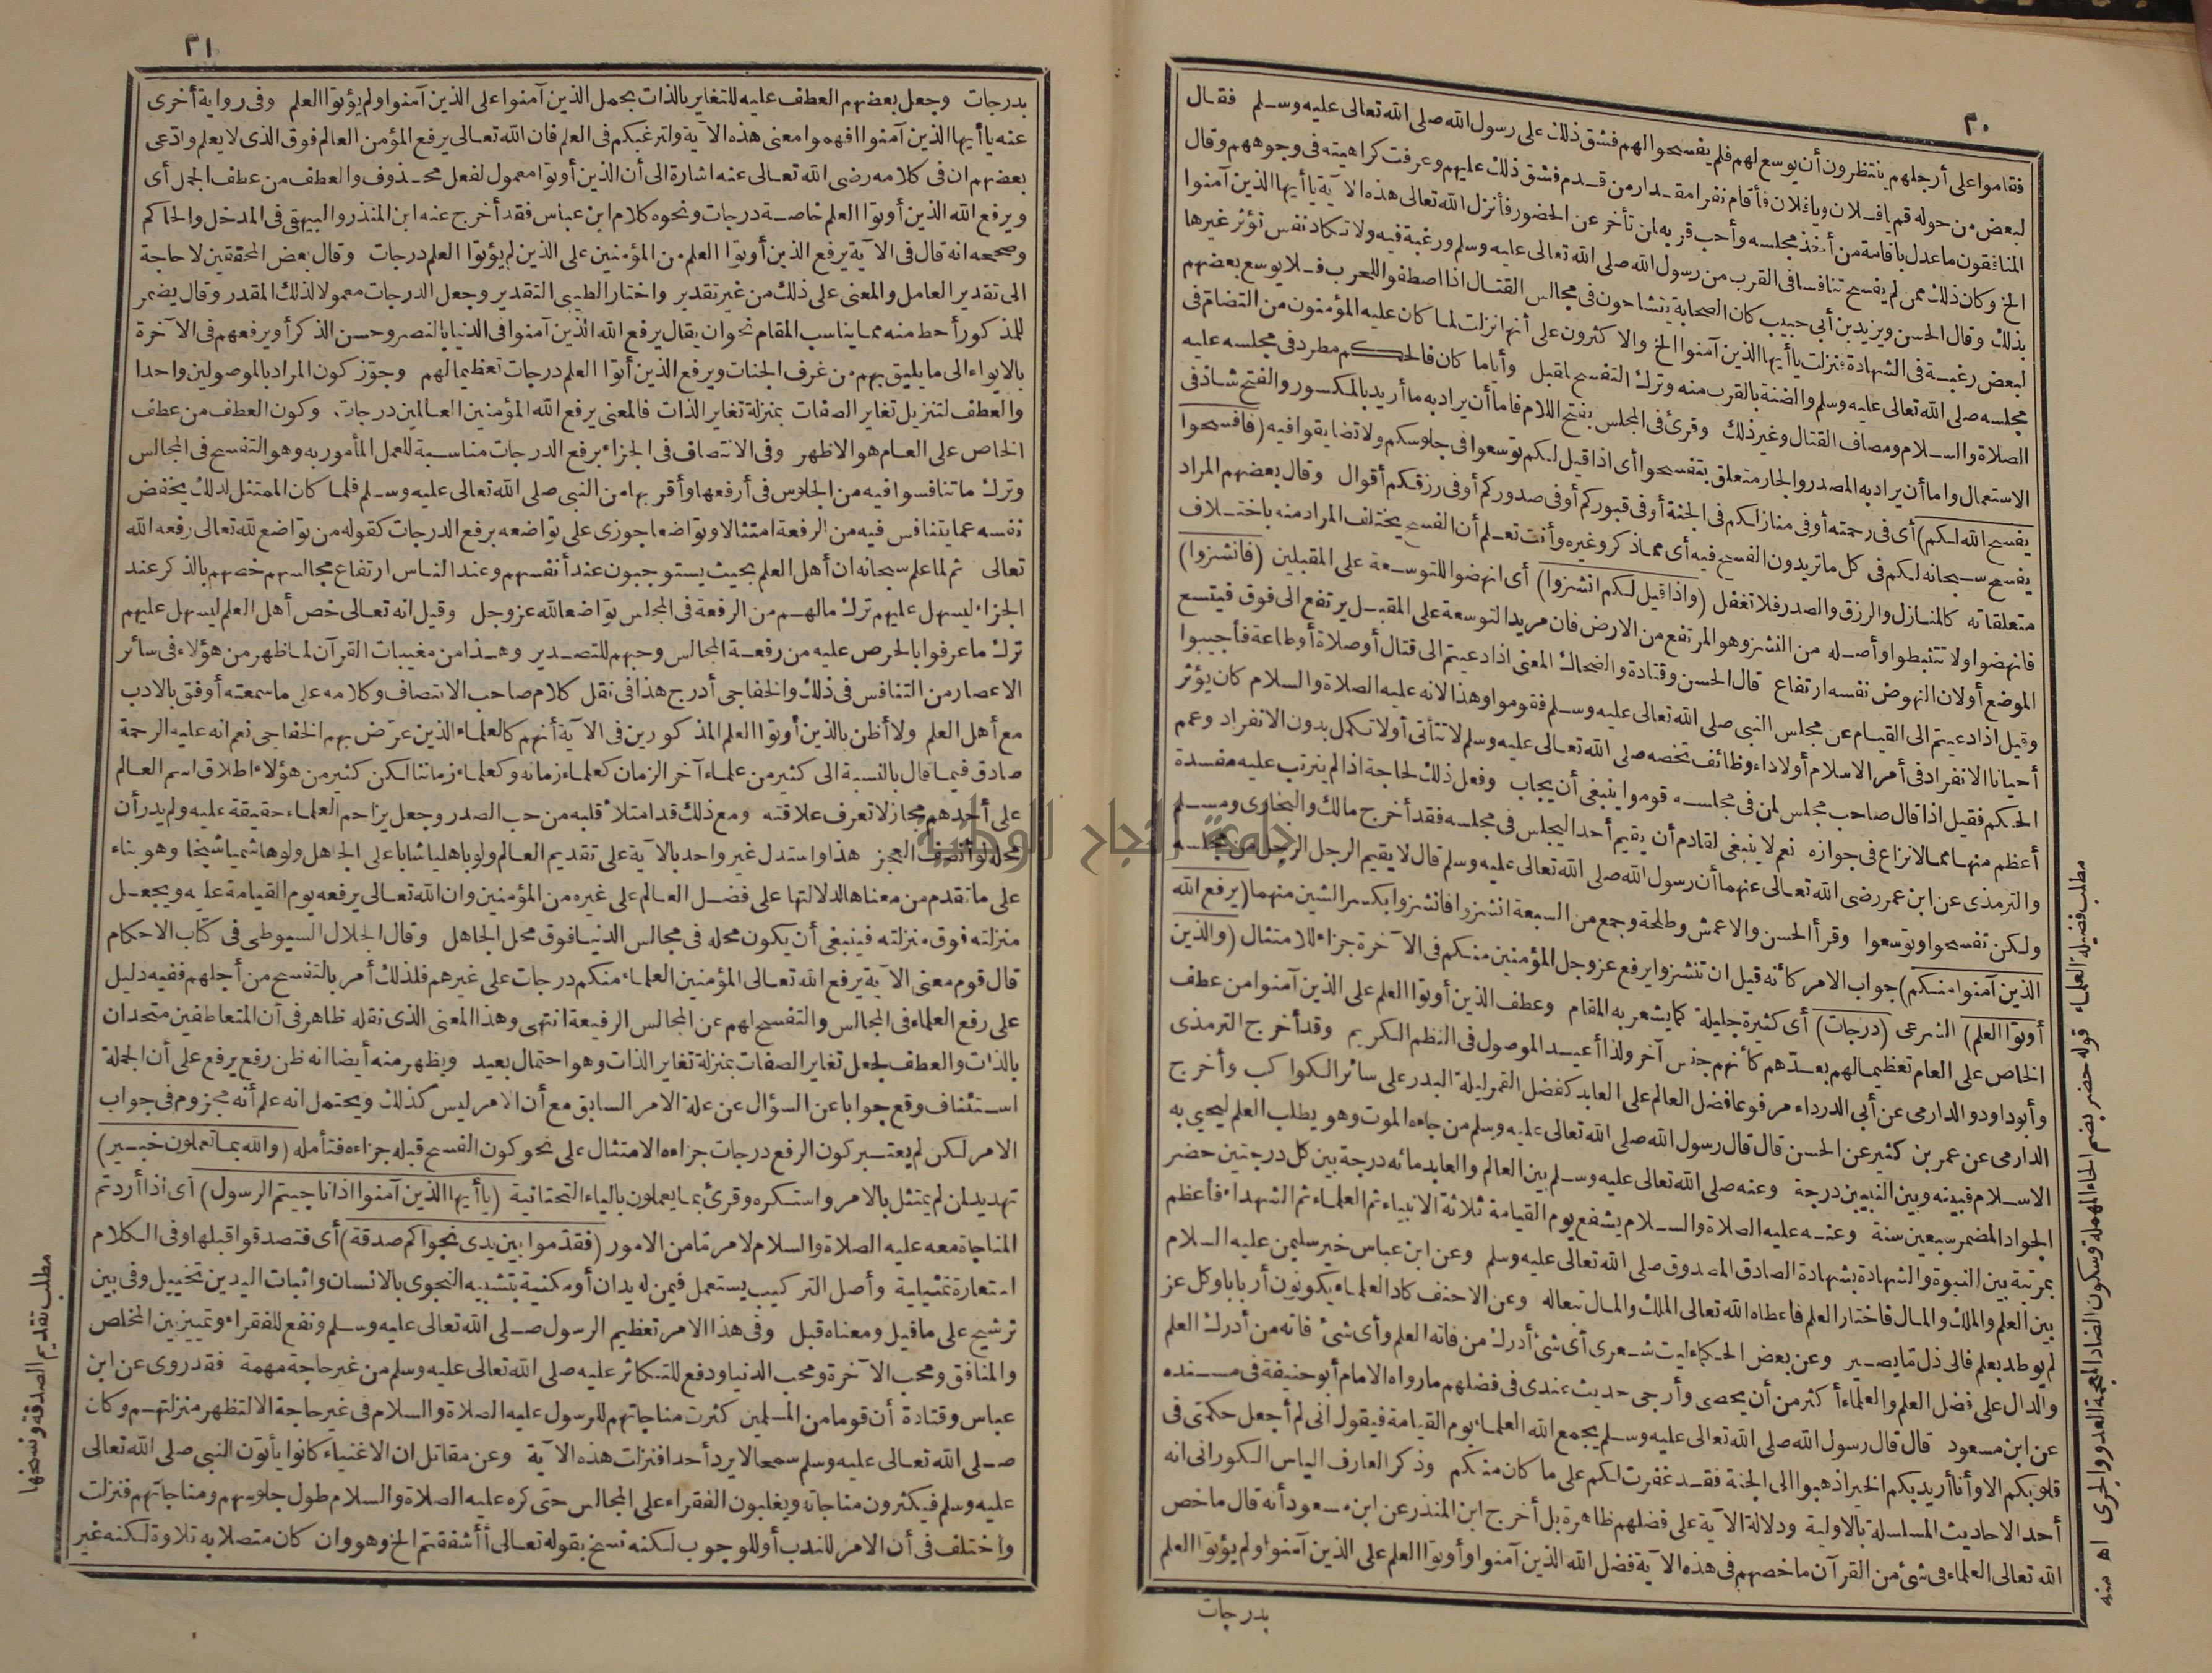 ٣٠
فقاموا على أرجلهم ينتظرون أن يوسع لهم فلم يفسحوا لهم فشق ذلك على رسول الله صلى الله تعالى عليه وسلم فقال
لبعض من حوله قم يا فلان ويا فلان فأقام نفرا مقدار من قدم فشق ذلك عليهم وعرفت كراهيته في وجوههم وقال
المنافقون ما عدل باقامة من أخذ مجلسه وأحب قربه لمن تأخر عن الحضور فأنزل الله تعالى هذه الآية يا أيها الذين آمنوا
الخ وكان ذلك ممن لم يفسح تنافسا في القرب من رسول الله صلى الله تعالى عليه وسلم ورغبة فيه ولا تكاد نفس تؤثر غيرها
بذلك وقال الحسن ويزيد بن أبي حبيب كان الصحابة يتشاحون في مجالس القتال اذا اصطفوا للحرب فلا يوسع بعضهم
لبعض رغبة في الشهادة فنزلت يا أيها الذين آمنوا الخ والاكثرون على أنها نزلت لما كان عليه المؤمنون من التضام في
مجلسه صلى الله تعالى عليه وسلم والضنة بالقرب منه وترك التفسح لمقبل وأياما كان فالحكم مطرد في مجلسه عليه
الصلاة والسلام ومصاف القتال وغير ذلك وقرئ في المجلس بفتح اللام فاما أن يراد به ما أريد بالمكسور والفتح شاذ في
الاستعمال واما أن يراد به المصدر والجار متعلق بتفسحوا أى اذا قيل لكم توسعوا في جلوسكم ولا تضايقوا فيه (فافسحوا
يفسح الله لكم) أى في رحمته أو في منازلكم في الجنة أو في قبوركم أو في صدوركم أو في رزقكم أقوال وقال بعضهم المراد
يفسح سبحانه لكم في كل ما تريدون الفسح فيه أى مما ذكر وغيره وأنت تعلم أن الفسح يختلف المراد منه باختلاف
متعلقاته كالمنازل والرزق والصدر فلا تغفل (واذا قيل لكم انشزوا) أى انهضوا للتوسعة على المقبلين (فانشزوا)
فانهضوا ولا تتثبطوا وأصله من النشز وهو المرتفع من الارض فان مريد التوسعة على المقبل يرتفع الى فوق فيتسع
الموضع أو لان النهوض نفسه ارتفاع قال الحسن وقتادة والضحاك المعنى اذا دعيتم الى قتال أو صلاة أو طاعة فأجيبوا
وقيل اذا دعيتم الى القيام عن مجلس النبى صلى الله تعالى عليه وسلم فقوموا وهذا لانه عليه الصلاة والسلام كان يؤثر
أحيانا الانفراد في أمر الاسلام أو لاداء وظائف تخصه صلى الله تعالى عليه وسلم لا تتأتى أو لا تكمل بدون الانفراد وعمم
الحكم فقيل اذا قال صاحب مجلس لمن في مجلسه قوموا ينبغى أن يجاب وفعل ذلك لحاجة اذا لم يترتب عليه مفسدة
أعظم منها مما لا نزاع في جوازه نعم لا ينبغى لقادم أن يقيم أحدا ليجلس في مجلسه فقد أخرج مالك والبخارى ومسلم
والترمذى عن ابن عمر رضى الله تعالى عنهما أن رسول الله صلى الله تعالى عليه وسلم قال لا يقيم الرجل الرجل من مجلسه
ولكن تفسحوا وتوسعوا وقرأ الحسن والاعمش وطلحة وجمع من السبعة انشزوا فانشزوا بكسر الشين منهما (يرفع الله
الذين آمنوا منكم) جواب الامر كأنه قيل ان تنشزوا يرفع عز وجل المؤمنين منكم في الآخرة جزاء للامتثال (والذين
أوتوا العلم) الشرعى (درجات) أى كثيرة جليلة كما يشعر به المقام وعطف الذين أوتوا العلم على الذين آمنوا من عطف
الخاص على العام تعظيما لهم بعدّهم كأنهم جنس آخر ولذا أعيد الموصول في النظم الكريم وقد أخرج الترمذى
وأبو داود والدارمى عن أبى الدرداء مرفوعا فضل العالم على العابد كفضل القمر ليلة البدر على سائر الكواكب وأخرج
الدارمى عن عمر بن كثير عن الحسن قال قال رسول الله صلى الله تعالى عليه وسلم من جاءه الموت وهو يطلب العلم ليحيي به
الاسلام فبينه وبين النبيين درجة وعنه صلى الله تعالى عليه وسلم بين العالم والعابد مائة درجة بين كل درجتين حضر
الجواد المضمر سبعين سنة وعنه عليه الصلاة والسلام يشفع يوم القيامة ثلاثة الانبياء ثم العلماء ثم الشهداء فأعظم
بمرتبة بين النبوة والشهادة بشهادة الصادق المصدوق صلى الله تعالى عليه وسلم وعن ابن عباس خير سليمن عليه السلام
بين العلم والملك والمال فاختار العلم فاعطاه الله تعالى الملك والمال تبعا له وعن الاحنف كاد العلماء يكونون أربابا وكل عز
لم يوطد بعلم فالى ذل ما يصير وعن بعض الحكماء ليت شعرى أى شئ أدرك من فاته العلم وأى شئ فاته من أدرك العلم
والدال على فضل العلم والعلماء أكثر من أن يحصى وأرجى حديث عندى في فضلهم ما رواه الامام أبو حنيفة في مسنده
عن ابن مسعود قال قال رسول الله صلى الله تعالى عليه وسلم يجمع الله العلماء يوم القيامة فيقول انى لم أجعل حكمتى في
قلوبكم الا وأنا أريد بكم الخير اذهبوا الى الجنة فقد غفرت لكم على ما كان منكم وذكر العارف الياس الكورانى انه
أحد الاحاديث المسلسلة بالاولية ودلالة الآية على فضلهم ظاهرة بل أخرج ابن المنذر عن ابن مسعود أنه قال ما خص
الله تعالى العلماء في شئ من القرآن ما خصهم في هذه الآية فضل الله الذين آمنوا وأوتوا العلم على الذين آمنوا ولم يؤتوا العلم
بدرجات
مطلب فضيلة العلماء قوله حضر بضم الحاء المهملة وسكون الضاد المعجمة العدو والجرى اه منه
جامعة النجاح الوطنية
٣١
بدرجات وجعل بعضهم العطف عليه للتغاير بالذات بحمل الذين آمنوا على الذين آمنوا ولم يؤتوا العلم وفى رواية أخرى
عنه يا أيها الذين آمنوا افهموا معنى هذه الآية ولترغبكم فى العلم فان الله تعالى يرفع المؤمن العالم فوق الذى لا يعلم وادّعى
بعضهم ان فى كلامه رضى الله تعالى عنه اشارة الى أن الذين أوتوا معمول لفعل محذوف والعطف من عطف الجمل أى
ويرفع الله الذين أوتوا العلم خاصة درجات ونحوه كلام ابن عباس فقد أخرج عنه ابن المنذر والبيهقى فى المدخل والحاكم
وصححه انه قال فى الآية يرفع الذين أوتوا العلم من المؤمنين على الذين لم يؤتوا العلم درجات وقال بعض المحققين لا حاجة
الى تقدير العامل والمعنى على ذلك من غير تقدير واختار الطيبى التقدير وجعل الدرجات معمولا لذلك المقدر وقال يضمر
للمذكور أحط منه مما يناسب المقام نحو ان يقال يرفع الله الذين آمنوا فى الدنيا بالنصر وحسن الذكر أو يرفعهم فى الآخرة
بالايواء الى ما يليق بهم من غرف الجنات ويرفع الذين أتوا العلم درجات تعظيما لهم وجوّز كون المراد بالموصولين واحدا
والعطف لتنزيل تغاير الصفات بمنزلة تغاير الذات فالمعنى يرفع الله المؤمنين العالمين درجات وكون العطف من عطف
الخاص على العام هو الاظهر وفى الانتصاف فى الجزاء برفع الدرجات مناسبة للعمل المأمور به وهو التفسح فى المجالس
وترك ما تنافسوا فيه من الجلوس فى أرفعها وأقربها من النبى صلى الله تعالى عليه وسلم فلما كان الممتثل لذلك يخفض
نفسه عما يتنافس فيه من الرفعة امتثالا وتواضعا جوزى على تواضعه برفع الدرجات كقوله من تواضع لله تعالى رفعه الله
تعالى ثم لما علم سبحانه ان أهل العلم بحيث يستوجبون عند أنفسهم وعند الناس ارتفاع مجالسهم خصهم بالذكر عند
الجزاء ليسهل عليهم ترك ما لهم من الرفعة فى المجلس تواضعا لله عز وجل وقيل انه تعالى خص أهل العلم ليسهل عليهم
ترك ما عرفوا بالحرص عليه من رفعة المجالس وحبهم للتصدير وهذا من مغيبات القرآن لما ظهر من هؤلاء فى سائر
الاعصار من التنافس فى ذلك والخفاجى أدرج هذا فى نقل كلام صاحب الانتصاف وكلامه على ما سمعته أوفق بالادب
مع أهل العلم ولا أظن بالذين أوتوا العلم المذكورين فى الآية أنهم كالعلماء الذين عرّض بهم الخفاجى نعم انه عليه الرحمة
صادق فيما قال بالنسبة الى كثير من علماء آخر الزمان كعلماء زمانه وكعلماء زماننا لكن كثير من هؤلاء اطلاق اسم العالم
على أحدهم مجاز لا تعرف علاقته ومع ذلك قد امتلأ قلبه من حب الصدر وجعل يزاحم العلماء حقيقة عليه ولم يدر أن
محله لو أنصف العجز هذا واستدل غير واحد بالآية على تقديم العالم ولو باهليا شابا على الجاهل ولو هاشميا شيخا وهو بناء
على ما تقدم من معناها لدلالتها على فضل العالم على غيره من المؤمنين وان الله تعالى يرفعه يوم القيامة عليه ويجعل
منزلته فوق منزلته فينبغى أن يكون محله فى مجالس الدنيا فوق محل الجاهل وقال الجلال السيوطى فى كتاب الاحكام
قال قوم معنى الآية يرفع الله تعالى المؤمنين العلماء منكم درجات على غيرهم فلذلك أمر بالتفسح من أجلهم ففيه دليل
على رفع العلماء فى المجالس والتفسح لهم عن المجالس الرفيعة انتهى وهذا المعنى الذى نقله ظاهر فى أن المتعاطفين متحدان
بالذات والعطف لجعل تغاير الصفات بمنزلة تغاير الذات وهو احتمال بعيد ويظهر منه أيضا انه ظن رفع يرفع على أن الجملة
استئناف وقع جوابا عن السؤال عن علة الامر السابق مع أن الامر ليس كذلك ويحتمل انه علم أنه مجزوم فى جواب
الامر لكن لم يعتبر كون الرفع درجات جزاءه الامتثال على نحو كون الفسح قبله جزاءه فتأمله (والله بما تعملون خبير)
تهديد لمن لم يمتثل بالامر واستكره وقرئ بما يعملون بالياء التحتانية (يا أيها الذين آمنوا اذا ناجيتم الرسول) أى اذا أردتم
المناجاة معه عليه الصلاة والسلام لامر ما من الامور (فقدّموا بين يدى نجواكم صدقة) أى فتصدقوا قبلها وفى الكلام
استعارة تمثيلية وأصل التركيب يستعمل فيمن له يدان أو مكنية بتشبيه النجوى بالانسان واثبات اليدين تخييل وفى بين
ترشيح على ما قيل ومعناه قبل وفى هذا الامر تعظيم الرسول صلى الله تعالى عليه وسلم ونفع للفقراء وتمييز بين المخلص
والمنافق ومحب الآخرة ومحب الدنيا ودفع للتكاثر عليه صلى الله تعالى عليه وسلم من غير حاجة مهمة فقد روى عن ابن
عباس وقتادة أن قوما من المسلمين كثرت مناجاتهم للرسول عليه الصلاة والسلام فى غير حاجة الا لتظهر منزلتهم وكان
صلى الله تعالى عليه وسلم سمحا لا يرد أحدا فنزلت هذه الآية وعن مقاتل ان الاغنياء كانوا يأتون النبى صلى الله تعالى
عليه وسلم فيكثرون مناجاته ويغلبون الفقراء على المجالس حتى كره عليه الصلاة والسلام طول جلوسهم ومناجاتهم فنزلت
واختلف فى أن الامر للندب أو للوجوب لكنه نسخ بقوله تعالى أأشفقتم الخ وهو وان كان متصلا به تلاوة لكنه غير
مطلب تقديم الصدقة ونسخها